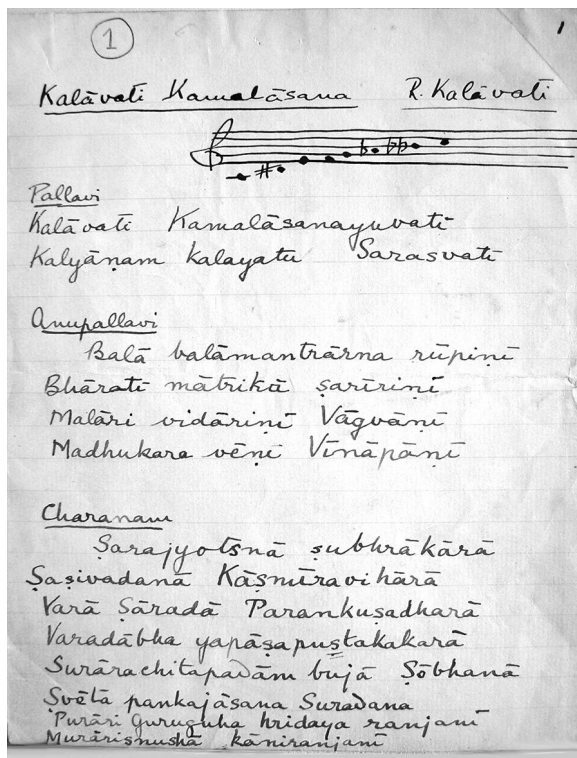 1
1
Kalāvati Kamalāsana R. Kalāvati
Pallavi
Kalāvatī Kamalāsanayuvatī
Kalyāṇam kalayatu Sarasvatī
Anupallavi
Balā balāmantrārna rūpiṇī
Bhāratī mātrikā ṣarīriṇī
Malāri vidāriṇī Vāgvāṇī
Madhukara vēṇī Vīṇāpāṇī
Charanam
Ṣarajyotsnā ṣubhrākārā
Ṣaṣivadanā Kāṣmīravihārā
Varā Ṣāradā Parankuṣadharā
Varadābha yapāṣapustakakarā
Surārachitapadām bujā Ṣōbhanā
Ṣvētā pankajāsana Suradana
Purāri Guruguha hridaya ranjanī
Murāriṣnushā kāniranjanī